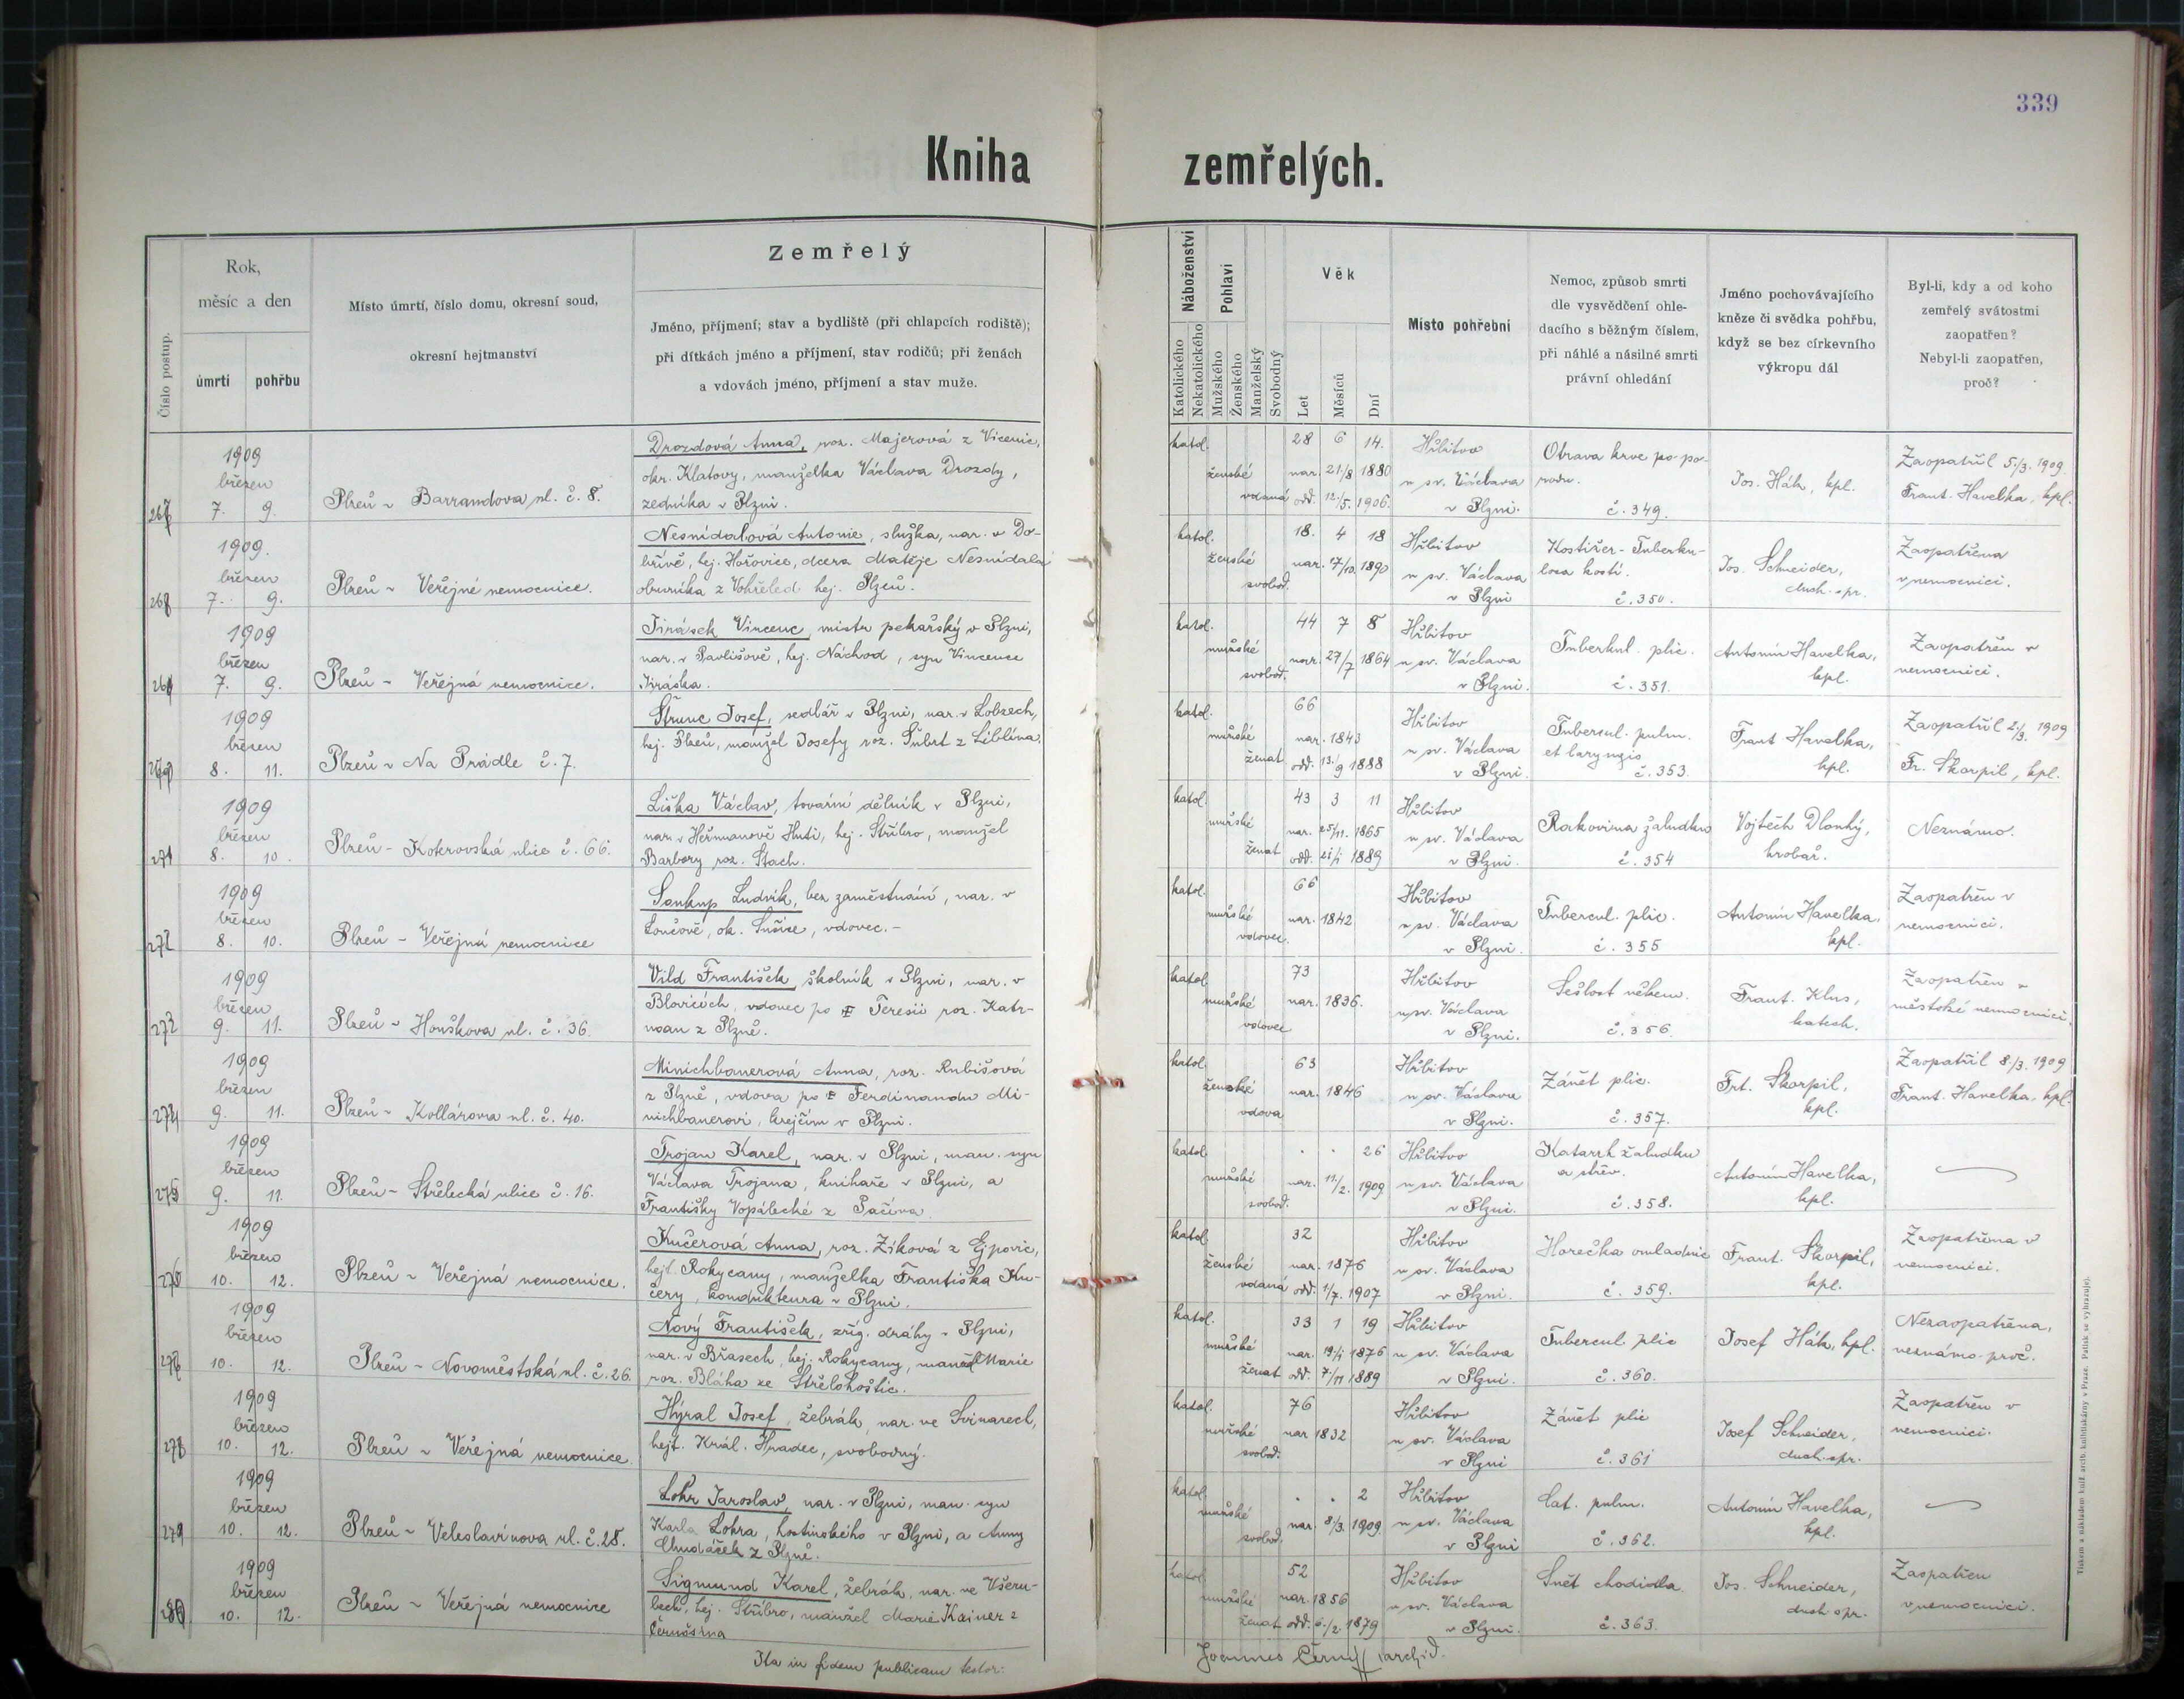 339
Kniha zemřelých.
Číslo postup.
Rok,
měsíc a den
úmrtí
pohřbu
Místo úmrtí, číslo domu, okresní soud,
okresní hejtmanství
Zemřelý
Jméno, příjmení; stav a bydliště (při chlapcích rodiště);
při dítkách jméno a příjmení, stav rodičů; při ženách
a vdovách jméno, příjmení a stav muže.
Náboženství
Katolického
Nekatolického
Pohlaví
Mužského
Ženského
Manželský
Svobodný
Věk
Let
Měsíců
Dní
Místo pohřební
Nemoc, způsob smrti
dle vysvědčení ohle-
dacího s běžným číslem,
při náhlé a násilné smrti
právní ohledání
Jméno pochovávajícího
kněze či svědka pohřbu,
když se bez církevního
výkropu dál
Byl-li, kdy a od koho
zemřelý svátostmi
zaopatřen?
Nebyl-li zaopatřen,
proč?
267
1909
březen
7. 9.
Plzeň - Barrandova ul. č. 8.
Drozdová Anna, roz. Majerová z Vícenic,
okr. Klatovy, manželka Václava Drozdy,
zedníka v Plzni.
katol.
ženské
vdaná
28 6 14.
nar. 21./8 1880
odd. 12./5. 1906.
Hřbitov
u sv. Václava
v Plzni.
Otrava krve po po-
rodu.
č. 349.
Jos. Hák, kpl.
Zaopatřil 5./3. 1909.
Frant. Havelka, kpl.
268
1909.
březen
7. 9.
Plzeň - Veřejné nemocnice.
Nesnídalová Antonie, služka, nar. v Do-
břívě, hej. Hořovice, dcera Matěje Nesnídala
obuvníka z Vohřeled hej. Plzeň.
katol.
ženské
svobod.
18. 4 18
nar. 17/10. 1890
Hřbitov
u sv. Václava
v Plzni
Kostižer - Tuberku-
losa kostí.
č. 350.
Jos. Schneider,
duch. spr.
Zaopatřena
v nemocnici.
1909
březen
7. 9.
Plzeň - Veřejná nemocnice.
Jirásek Vincenc, mistr pekařský v Plzni,
nar. v Pavlišově, hej. Náchod, syn Vincence
Jiráska.
katol.
mužské
svobod.
44 7 8
nar. 27/7 1864
Hřbitov
u sv. Václava
v Plzni.
Tuberkul. plic.
č. 351.
Antonín Havelka,
kpl.
Zaopatřen v
nemocnici.
1909
březen
8. 11.
Plzeň - Na Prádle č. 7.
Štrunc Josef, sedlář v Plzni, nar. v Lobzech,
hej. Plzeň, manžel Josefy roz. Šubrt z Liblína.
katol.
mužské
ženat
66
nar. 1843
odd. 13./9 1888
Hřbitov
u sv. Václava
v Plzni.
Tubercul. pulm.
et laryngis
č. 353.
Frant Havelka,
kpl.
Zaopatřil 2/3. 1909
Fr. Škorpil, kpl.
271
1909
březen
8. 10.
Plzeň - Koterovská ulice č. 66.
Liška Václav, tovární dělník v Plzni,
nar. v Heřmanově Huti, hej. Stříbro, manžel
Barbory roz. Stach.
katol.
mužské
ženat
43 3 11
nar. 25/11. 1865
odd. 21/1 1889
Hřbitov
u sv. Václava
v Plzni.
Rakovina žaludku
č. 354
Vojtěch Dlouhý,
hrobař.
Neznámo.
272
1909
březen
8. 10.
Plzeň - Veřejná nemocnice
Soukup Ludvík, bez zaměstnání, nar. v
Loučově, ok. Sušice, vdovec. -
katol.
mužské
vdovec.
66
nar. 1842
Hřbitov
u sv. Václava
v Plzni.
Tubercul. plic.
č. 355
Antonín Havelka.
kpl.
Zaopatřen v
nemocnici.
273
1909
březen
9. 11.
Plzeň - Houškova ul. č. 36.
Vild František, školník v Plzni, nar. v
Blovicích, vdovec po Teresii roz. Katr-
noan z Plzně.
katol.
mužské
vdovec
73
nar. 1836.
Hřbitov
u sv. Václava
v Plzni.
Sešlost věkem.
č. 356.
Frant. Klus,
katech.
Zaopatřen v
městské nemocnici.
274
1909
březen
9. 11.
Plzeň - Kollárova ul. č. 40.
Minichbanerová Anna, roz. Rubišová
z Plzně, vdova po Ferdinandu Mi-
nichbanerovi, krejčím v Plzni.
katol.
ženské
vdova
63
nar. 1846
Hřbitov
u sv. Václava
v Plzni.
Zánět plic.
č. 357.
Frt. Škorpil,
kpl.
Zaopatřil 8./3. 1909
Frant. Havelka, kpl.
275
1909
březen
9. 11.
Plzeň - Střelecká ulice č. 16.
Trojan Karel, nar. v Plzni, man. syn
Václava Trojana, knihaře v Plzni, a
Františky Vopálecké z Pačína.
katol.
mužské
svobod.
. . 26
nar. 11/2. 1909.
Hřbitov
u sv. Václava
v Plzni.
Katarrh žaludku
a střev.
č. 358.
Antonín Havelka,
kpl.
276
1909
březen
10. 12.
Plzeň - Veřejná nemocnice.
Kučerová Anna, roz. Zíková z Ejpovic,
hejt. Rokycany, manželka Františka Ku-
čery, konduktura v Plzni.
katol.
ženské
vdaná
32
nar. 1876
odd. 1/7. 1907
Hřbitov
u sv. Václava
v Plzni.
Horečka omladnic
č. 359.
Frant. Škorpil,
kpl.
Zaopatřena v
nemocnici.
277
1909
březen
10. 12.
Plzeň - Novoměstská ul. č. 26.
Nový František, zříz. dráhy v Plzni,
nar. v Břasech, hej. Rokycany, manžel Marie
roz. Bláha ze Střelohoštic.
katol.
mužské
ženat
33 1 19
nar. 19/1 1876
odd. 7/11 1889
Hřbitov
u sv. Václava
v Plzni.
Tubercul plic
č. 360.
Josef Hák, kpl.
Nezaopatřena,
neznámo proč.
278
1909
březen
10. 12.
Plzeň - Veřejná nemocnice.
Hýral Josef, žebrák, nar. ve Svinarech,
hejt. Král. Hradec, svobodný.
katol.
mužské
svobod.
76
nar 1832
Hřbitov
u sv. Václava
v Plzni
Zánět plic
č. 361
Josef Schneider,
duch. spr.
Zaopatřen v
nemocnici.
279
1909
březen
10. 12.
Plzeň - Veleslavínova ul. č. 28.
Lohr Jaroslav, nar. v Plzni, man. syn
Karla Lohra, hostinského v Plzni, a Anny
Chudáček z Plzně.
katol.
mužské
svobod.
. . 2
nar. 8/3. 1909.
Hřbitov
u sv. Václava
v Plzni
Cat. pulm.
č. 362.
Antonín Havelka,
kpl.
280
1909
březen
10. 12.
Plzeň - Veřejná nemocnice
Sigmund Karel, žebrák, nar. ve Všeru-
bech, hej. Stříbro, manžel Marie Kainer z
Černošína
katol.
mužské
ženat
52
nar. 1856
odd. 6./2. 1879
Hřbitov
u sv. Václava
v Plzni.
Snět chodidla.
č. 363.
Jos. Schneider,
duch. spr.
Zaopatřen
v nemocnici.
Ita in fidem publicam testor:
Joannes Černý archid.
Tiskem a nákladem kníž. arcib. knihtiskárny v Praze. Patisk se vyhrazuje.